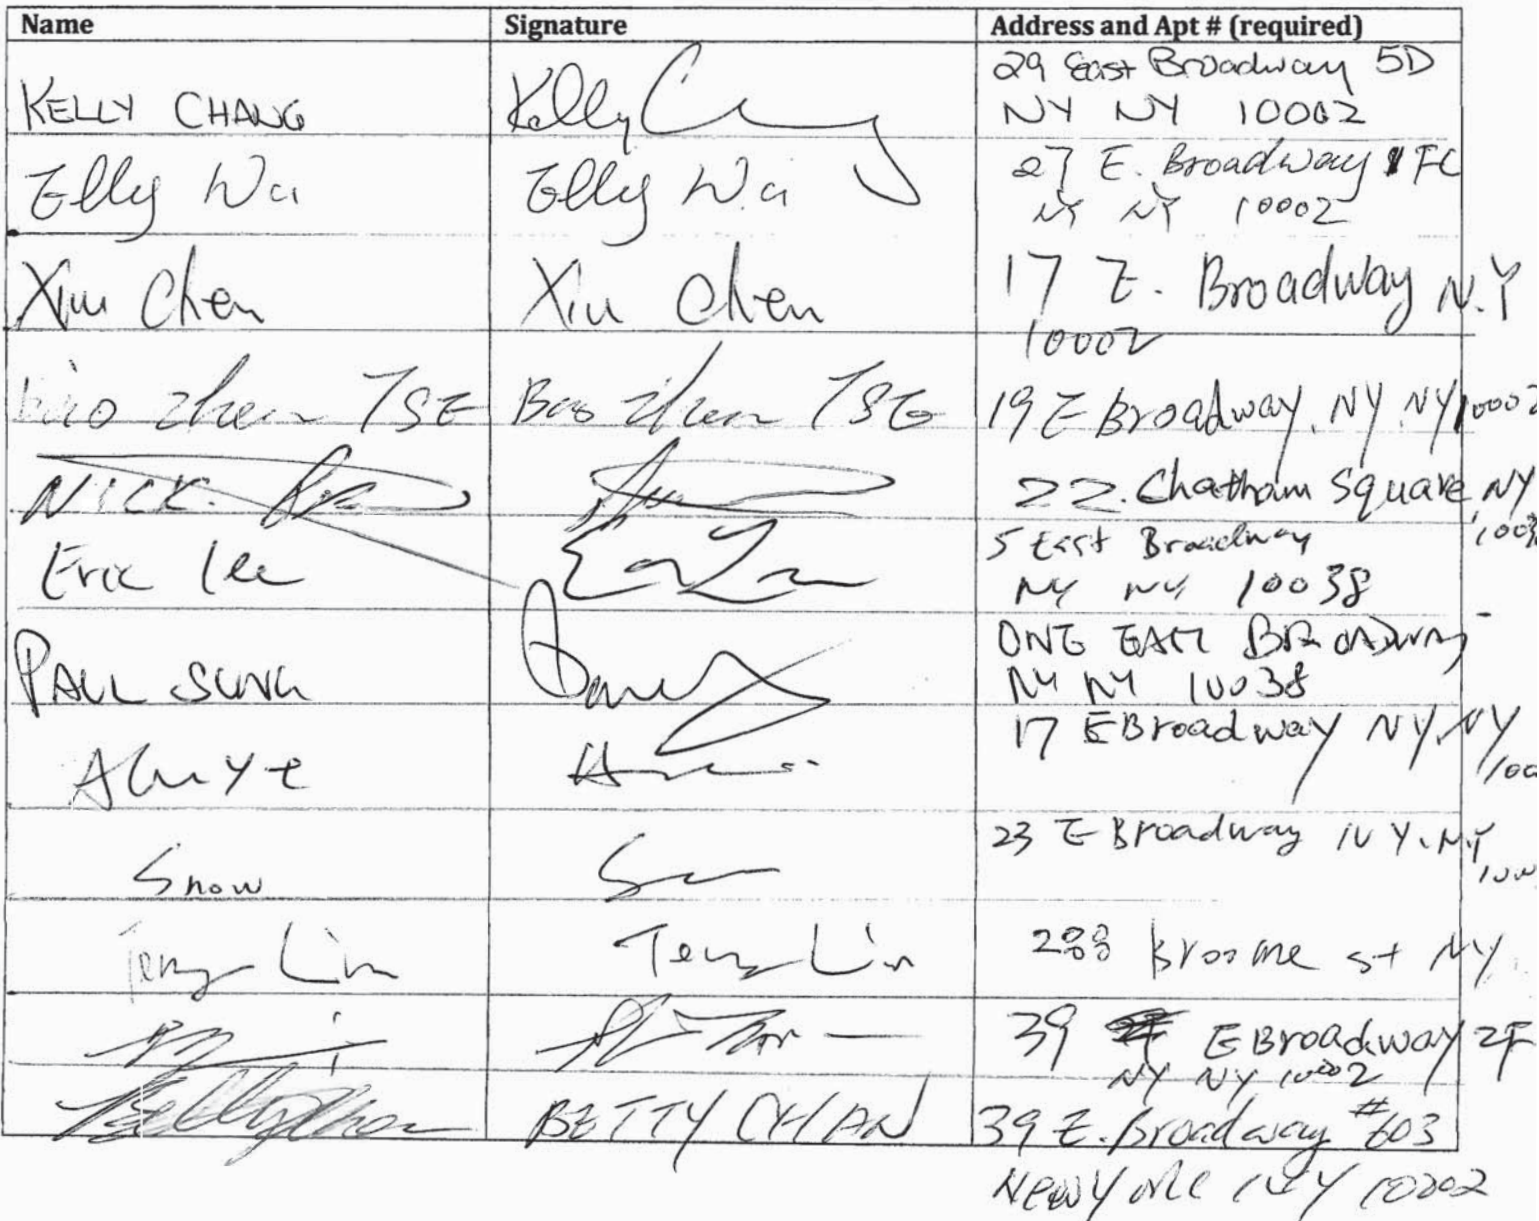 Name Signature Address and Apt # (required)
KELLY CHANG Kelly 29 East Broadway 5D
NY NY 10002
Elly Wu Elly Wu 27 E. Broadway FC
NY NY 10002
Xiu Chen Xiu Chen 17 E. Broadway N.Y
10002
Bao zhen TSE Bao zhen TSE 19 E Broadway, NY NY 10002
NICK. 22. Chatham Square, NY
Eric Lee 5 East Broadway
NY NY 10038
PAUL SUNG ONE EAST BROADWAY
NY NY 10038
17 E Broadway NY. NY
Snow 23 E Broadway NY. NY
Terry Lin Terry Lin 288 Broome st NY
39 E Broadway 2F
NY NY 10002
BETTY CHAN 39 E. Broadway #603
New York NY 10002